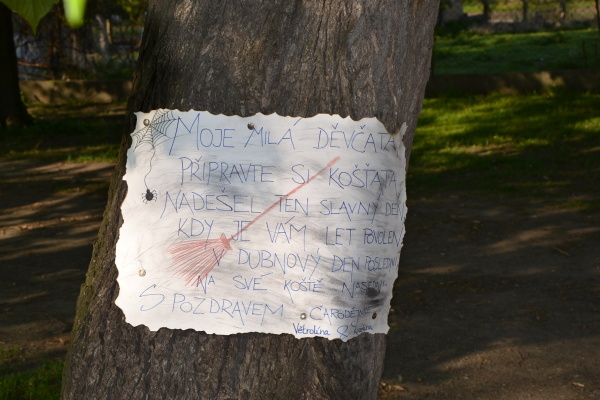 MOJE MILÁ DĚVČATA
PŘIPRAVTE SI KOŠŤATA
NADEŠEL TEN SLAVNÝ DEN
KDY JE VÁM LET POVOLEN
V DUBNOVÝ DEN POSLEDNÍ
NA SVÉ KOŠTĚ
S POZDRAVEM
Větrolína &